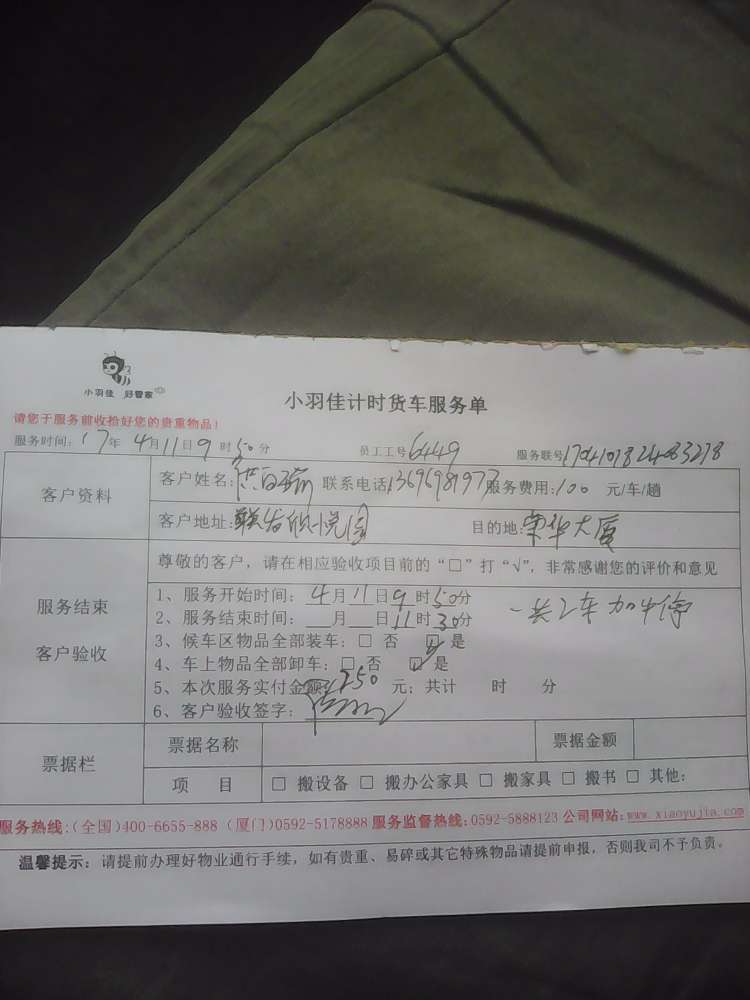 小羽佳 好管家
小羽佳计时货车服务单
请您于服务前收拾好您的贵重物品！
服务时间：17年4月11日9时50分 员工工号6449 服务联号
客户资料
客户姓名： 联系电话13696981977服务费用：100 元/车/趟
客户地址：联发欣悦园 目的地：荣华大厦
服务结束
客户验收
尊敬的客户，请在相应验收项目前的“□”打“√”，非常感谢您的评价和意见
1、服务开始时间：4月11日9时50分
2、服务结束时间：__月__日11时30分
一共2车加4停
3、候车区物品全部装车：□ 否 ☑ 是
4、车上物品全部卸车：□ 否 ☑ 是
5、本次服务实付金额：250 元；共计 时 分
6、客户验收签字：
票据栏
票据名称 票据金额
项 目 □ 搬设备 □ 搬办公家具 □ 搬家具 □ 搬书 □ 其他：
服务热线：(全国)400-6655-888 (厦门)0592-5178888 服务监督热线：0592-5888123 公司网站：www.xiaoyujia.com
温馨提示：请提前办理好物业通行手续，如有贵重、易碎或其它特殊物品请提前申报，否则我司不予负责。